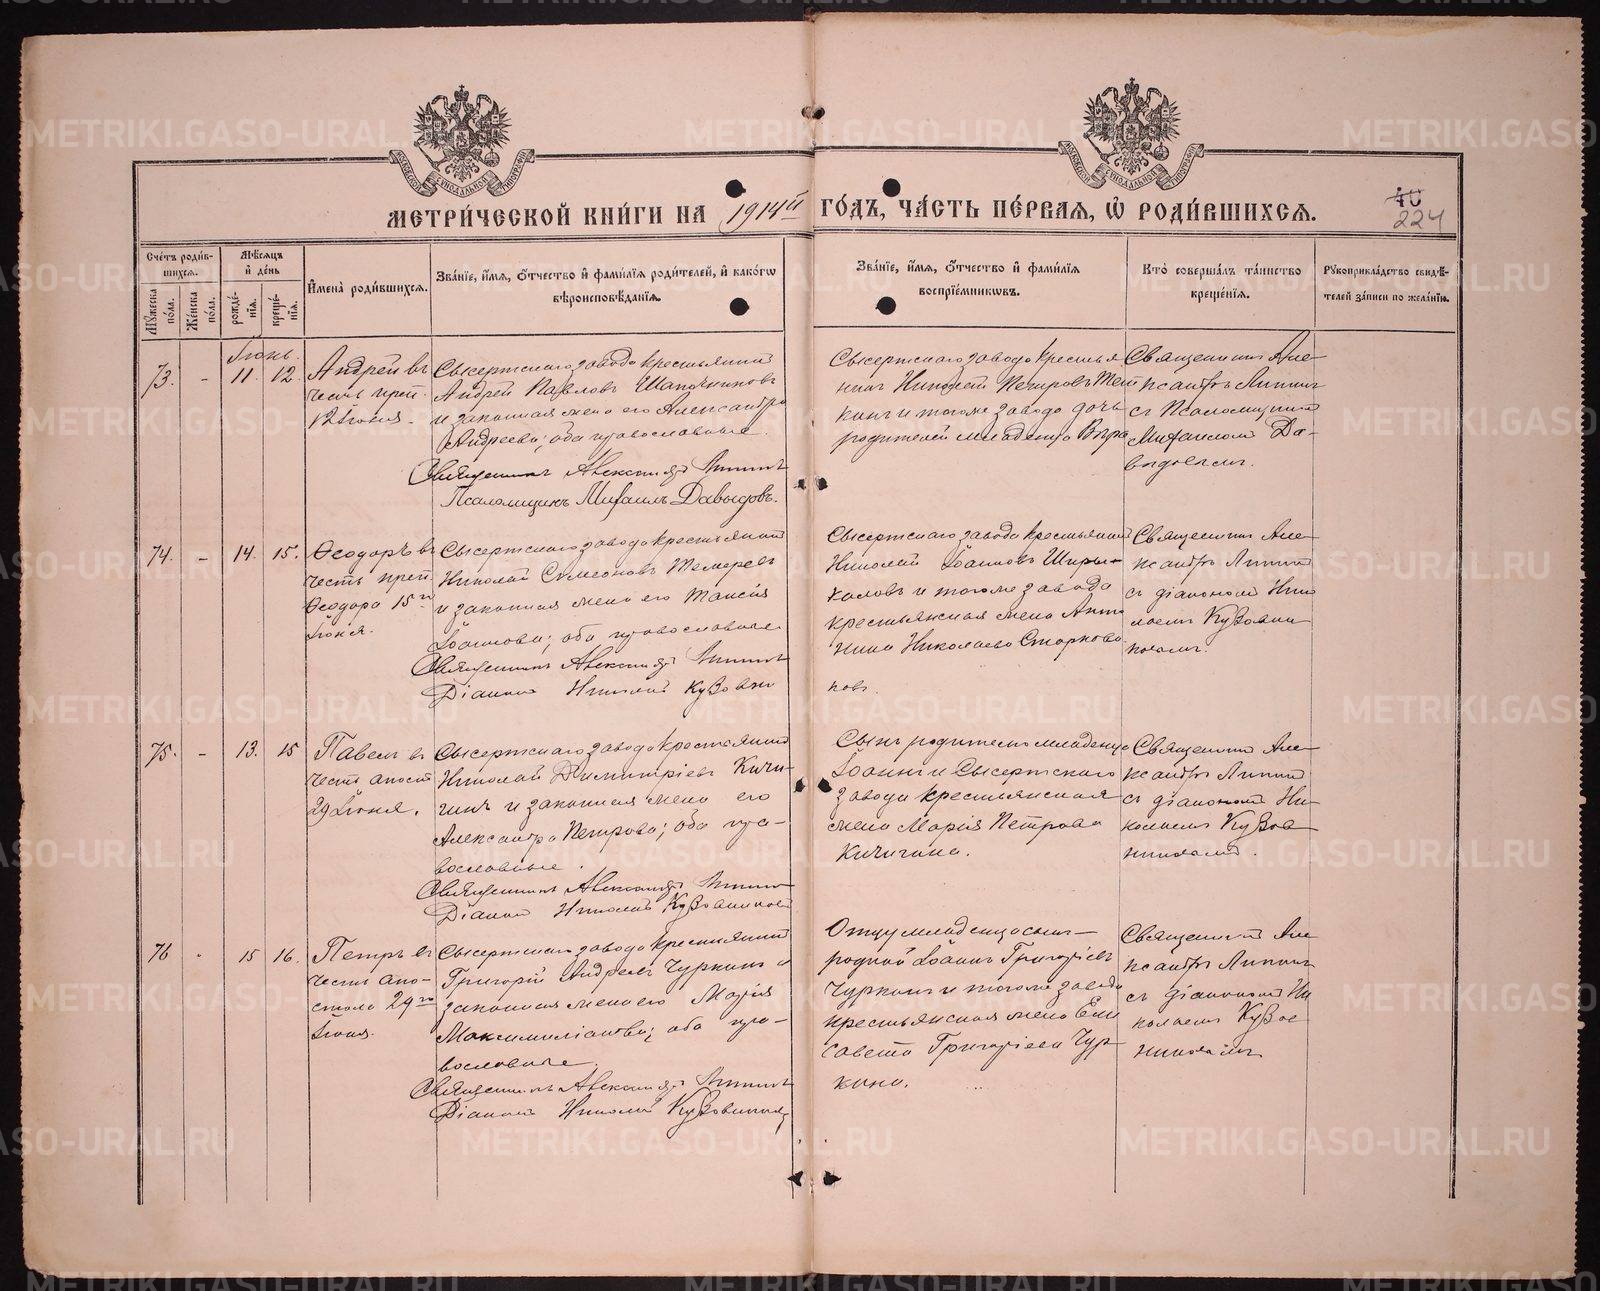 МЕТРИ́ЧЕСКОЙ КНИ́ГИ НА 1914й ГО́ДЪ, ЧА́СТЬ ПЕ́РВАЯ, Ѡ҆ РОДИ́ВШИХСЯ.
40
224
Сче́тъ роди́в-
шихся.
Мѹ́жеска по́ла.
Же́нска по́ла.
Мѣ́сяцъ и҆ де́нь
рожде́-
нїя.
креще́-
нїя.
И҆мена̀ роди́вшихся.
Зва́нїе, и҆́мя, ѻ҆́тчество и҆ фами́лїя роди́телей, и҆ како́гѡ
вѣроисповѣ́данїя.
Зва́нїе, и҆́мя, ѻ҆́тчество и҆ фами́лїя
воспрїе́мникѡвъ.
Кто̀ соверша́лъ та́инство
креще́нїя.
Рѹкоприкла́дство свидѣ́-
телей за́писи по жела́нїю.
Іюнь.
73. - 11. 12.
Андрей въ
честь преп.
12 Іюня.
Сысертскаго завода крестьянинъ
Андрей Павловъ Шапочниковъ
и законная жена его Александра
Андреева; оба православные.
Священникъ Александръ
Псаломщикъ Михаилъ Давыдовъ.
Сысертскаго завода крестья-
нинъ Николай Петровъ Тет
кинъ и тогоже завода дочь
родителей младенца Вѣра
Священникъ Але-
ксандръ
съ Псаломщикомъ
Михаиломъ Да-
выдовымъ.
74. - 14. 15.
Ѳеодоръ въ
честь преп.
Ѳеодора 15го
Іюня.
Сысертскаго завода крестьянинъ
Николай Симеоновъ Темеревъ
и законная жена его Таисія
Іоаннова; оба православные.
Священникъ Александръ
Діаконъ Николай Кузовник
Сысертскаго завода крестьянинъ
Николай Іоанновъ Ширы-
каловъ и тогоже завода
крестьянская жена Анто
нина Николаева Старкова
Священникъ Але
ксандръ
съ діакономъ Нико
лаемъ Кузовни
ковымъ.
75. - 13. 15
Павелъ въ
честь апост.
29 Іюня.
Сысертскаго завода крестьянинъ
Николай Димитріевъ Кичи-
гинъ и законная жена его
Александра Петрова; оба пра-
вославные.
Священникъ Александръ
Діаконъ Николай Кузовниковъ
Сынъ родителей младенца
Іоаннъ и Сысертскаго
завода крестьянская
жена Марія Петрова
Кичигина.
Священникъ Але
ксандръ
съ діакономъ Ни-
колаемъ Кузов
никовымъ.
76 - 15 16.
Петръ въ
честь апо-
стола 29го
Іюня.
Сысертскаго завода крестьянинъ
Григорій Андреевъ Чуркинъ и
законная жена его Марія
Максимиліанова; оба пра-
вославные.
Священникъ Александръ
Діаконъ Николай Кузовниковъ
Отцу младенца сынъ
родной Іоаннъ Григоріевъ
Чуркинъ и тогоже завода
крестьянская жена Ели
савета Григоріева Чур
кина.
Священникъ Але
ксандръ
съ діакономъ Ни
колаемъ Кузов
никовымъ
METRIKI.GASO-URAL.RU